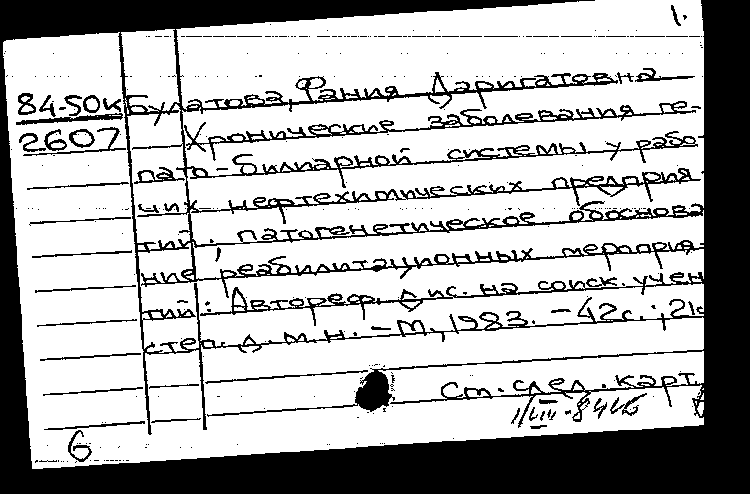 1.
84-50к Булатова, Фания Даригатовна
2607 Хронические заболевания ге-
пато-билиарной системы у рабо-
чих нефтехимических предприя-
тий; патогенетическое обоснова
ние реабилитационных мероприя-
тий: Автореф. дис. на соиск. учен
степ. д. м. н. - М., 1983. - 42с.; 21с
См. след. карт.
6